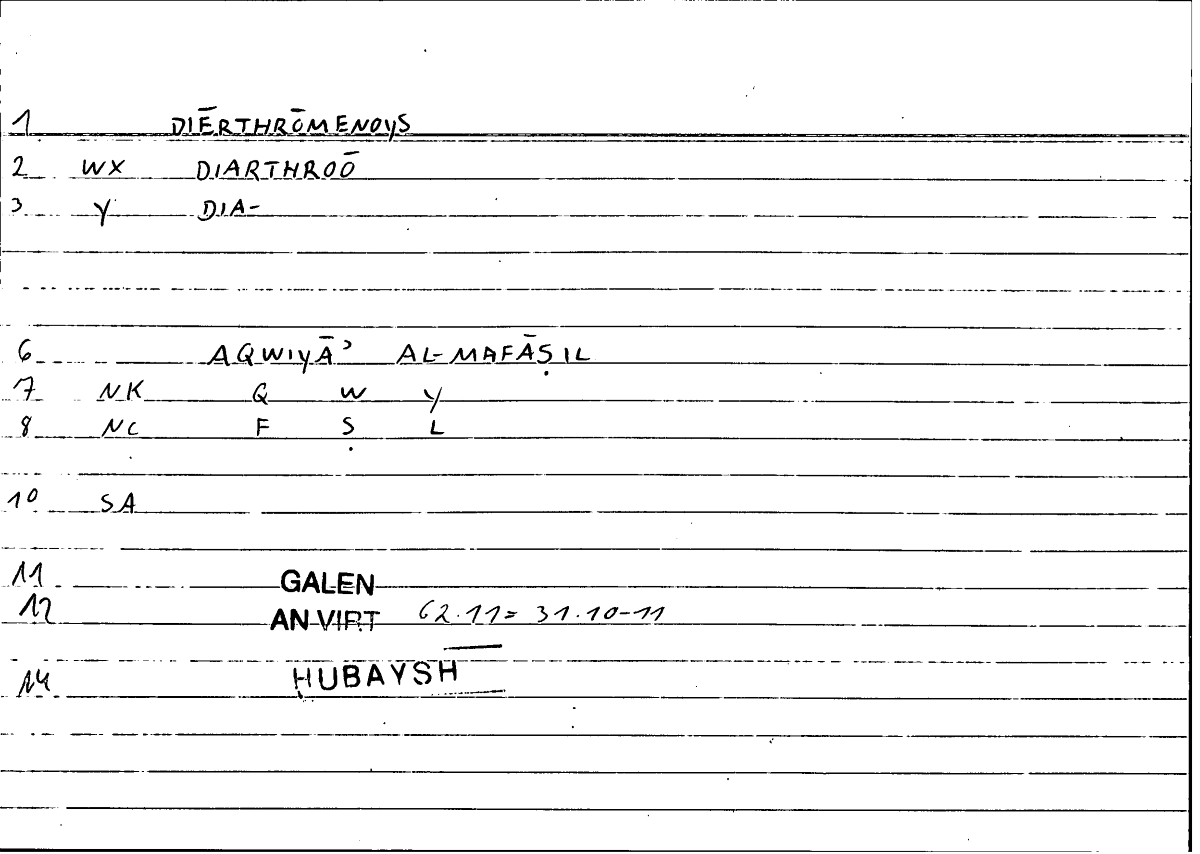 1 DIĒRTHRŌMENOYS
2 WX DIARTHROŌ
3 Y DIA-
6 AQWIYĀʾ AL-MAFĀṢIL
7 NK Q W Y
8 NC F Ṣ L
10 SA
11 GALEN
12 AN VIRT 62.11= 31.10-11
14 HUBAYSH